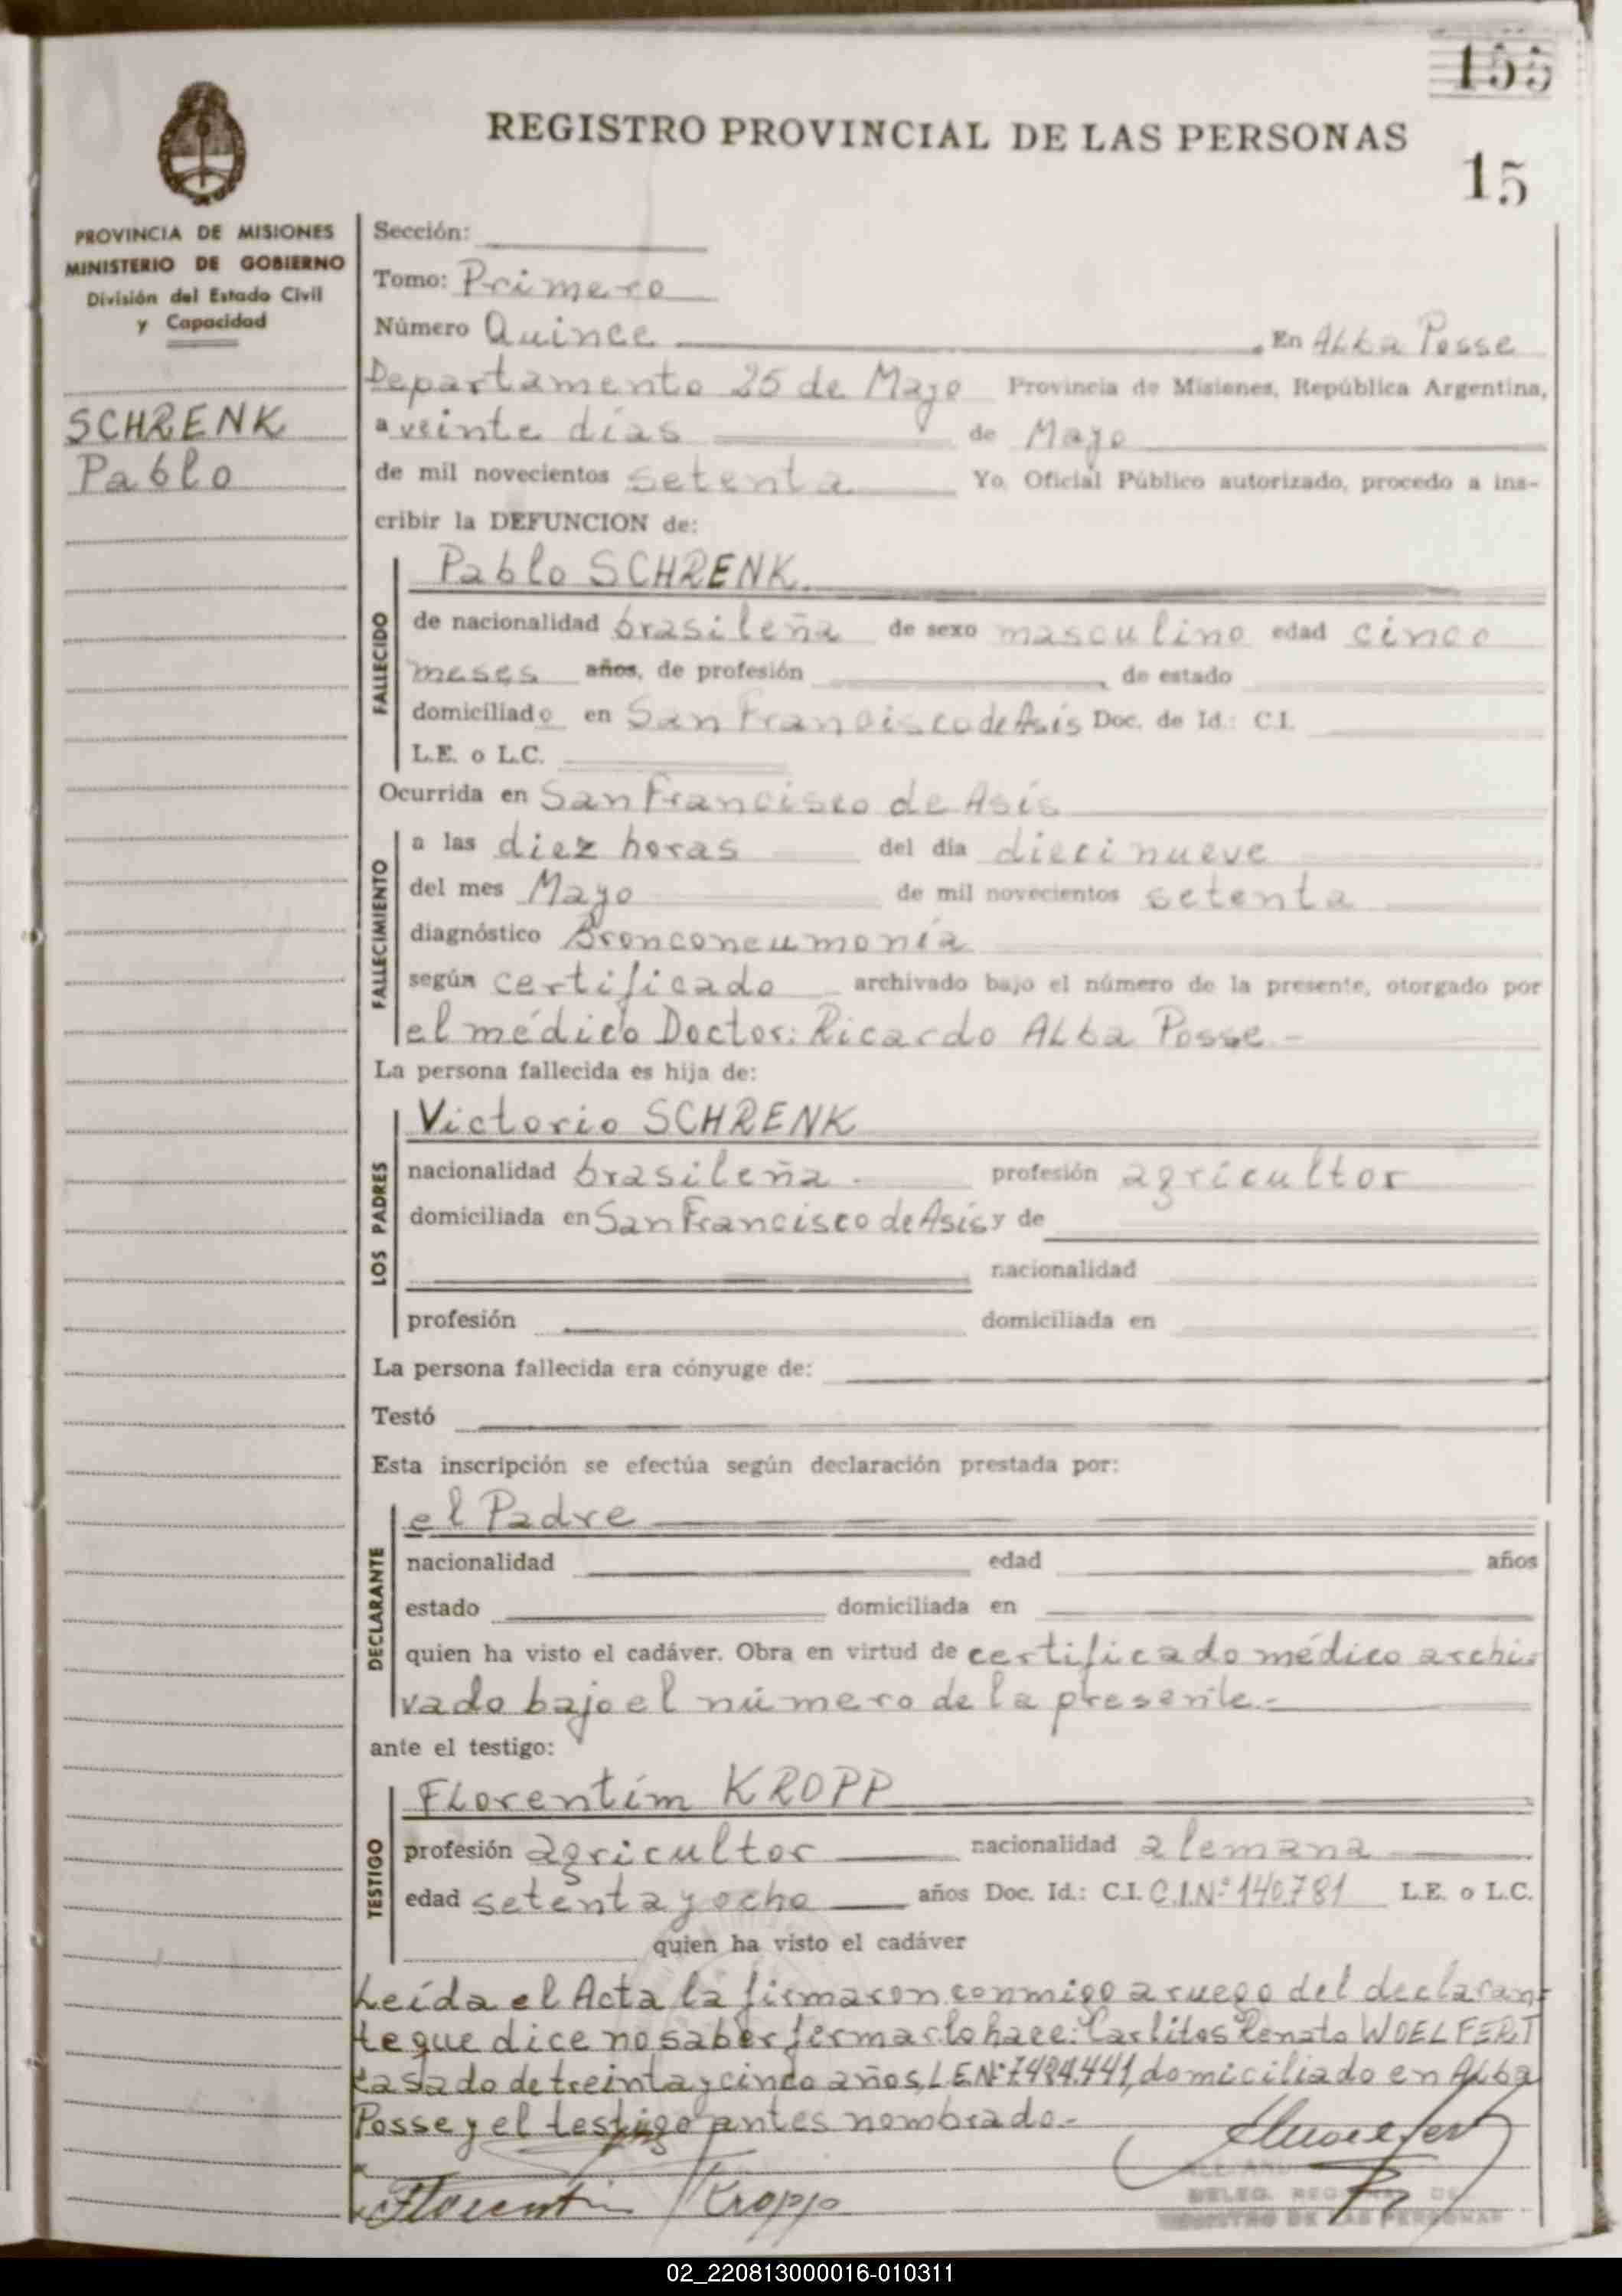 155
REGISTRO PROVINCIAL DE LAS PERSONAS
15
PROVINCIA DE MISIONES
MINISTERIO DE GOBIERNO
División del Estado Civil
y Capacidad
SCHRENK
Pablo
Sección:
Tomo: Primero
Número Quince . En Alba Posse
Departamento 25 de Mayo Provincia de Misiones, República Argentina,
a veinte días de Mayo
de mil novecientos setenta Yo, Oficial Público autorizado, procedo a ins-
cribir la DEFUNCION de:
FALLECIDO
Pablo SCHRENK.
de nacionalidad brasileña de sexo masculino edad cinco
meses años, de profesión , de estado
domiciliado en San Francisco de Asís Doc. de Id.: C.I.
L.E. o L.C.
Ocurrida en San Francisco de Asís
FALLECIMIENTO
a las diez horas del día diecinueve
del mes Mayo de mil novecientos setenta
diagnóstico Bronconeumonía
según certificado archivado bajo el número de la presente, otorgado por
el médico Doctor: Ricardo Alba Posse.-
La persona fallecida es hija de:
LOS PADRES
Victorio SCHRENK
nacionalidad brasileña. profesión agricultor
domiciliada en San Francisco de Asís y de
nacionalidad
profesión domiciliada en
La persona fallecida era cónyuge de:
Testó
Esta inscripción se efectúa según declaración prestada por:
DECLARANTE
el Padre
nacionalidad edad años
estado domiciliada en
quien ha visto el cadáver. Obra en virtud de certificado médico archi-
vado bajo el número de la presente.-
ante el testigo:
TESTIGO
Florentím KROPP
profesión agricultor nacionalidad alemana
edad setenta y ocho años Doc. Id.: C.I. C.I.Nº 140.781 L.E. o L.C.
quien ha visto el cadáver
Leída el Acta la firmaron conmigo a ruego del declaran-
te que dice no saber firmar lo hace: Carlitos Renato WOELFERT
casado de treinta y cinco años, L.E.Nº 7.484.441, domiciliado en Alba
Posse y el testigo antes nombrado.-
Florentin Kropp
DELEG. REG
REGISTRO DE LAS PERSONAS
02_220813000016-010311